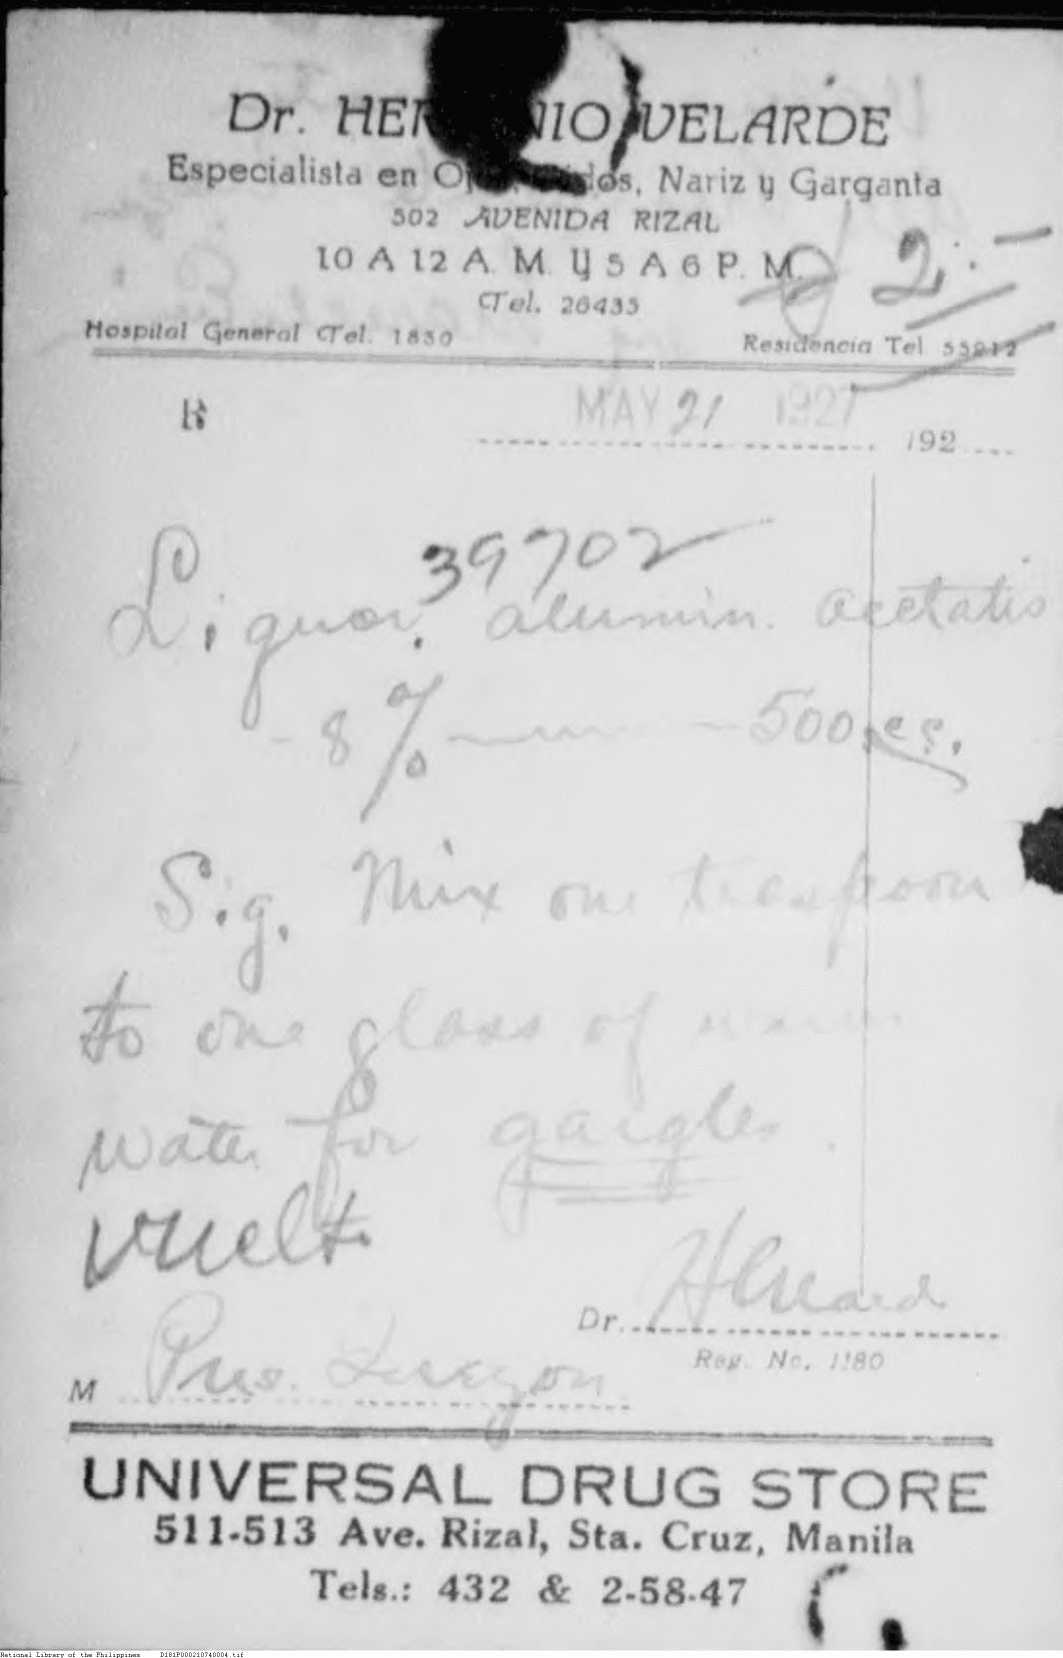 Dr. HER NIO VELARDE
Especialista en Ojos, Oidos, Nariz y Garganta
502 AVENIDA RIZAL
10 A 12 A. M. y 5 A 6 P. M.
2.-
Tel. 26435
Hospital General Tel. 1850
Residencia Tel 55912
R
MAY 21 1927
192
39702
Liquor. alumin. acetatis
- 8 % 500 cc.
Sig. Mix one teaspoon
to one glass of warm
water for gargles.
vuelt.
Dr.
Reg. No. 1180
M Pres.
UNIVERSAL DRUG STORE
511-513 Ave. Rizal, Sta. Cruz, Manila
Tels.: 432 & 2-58-47
National Library of the Philippines D181P000210740004.tif